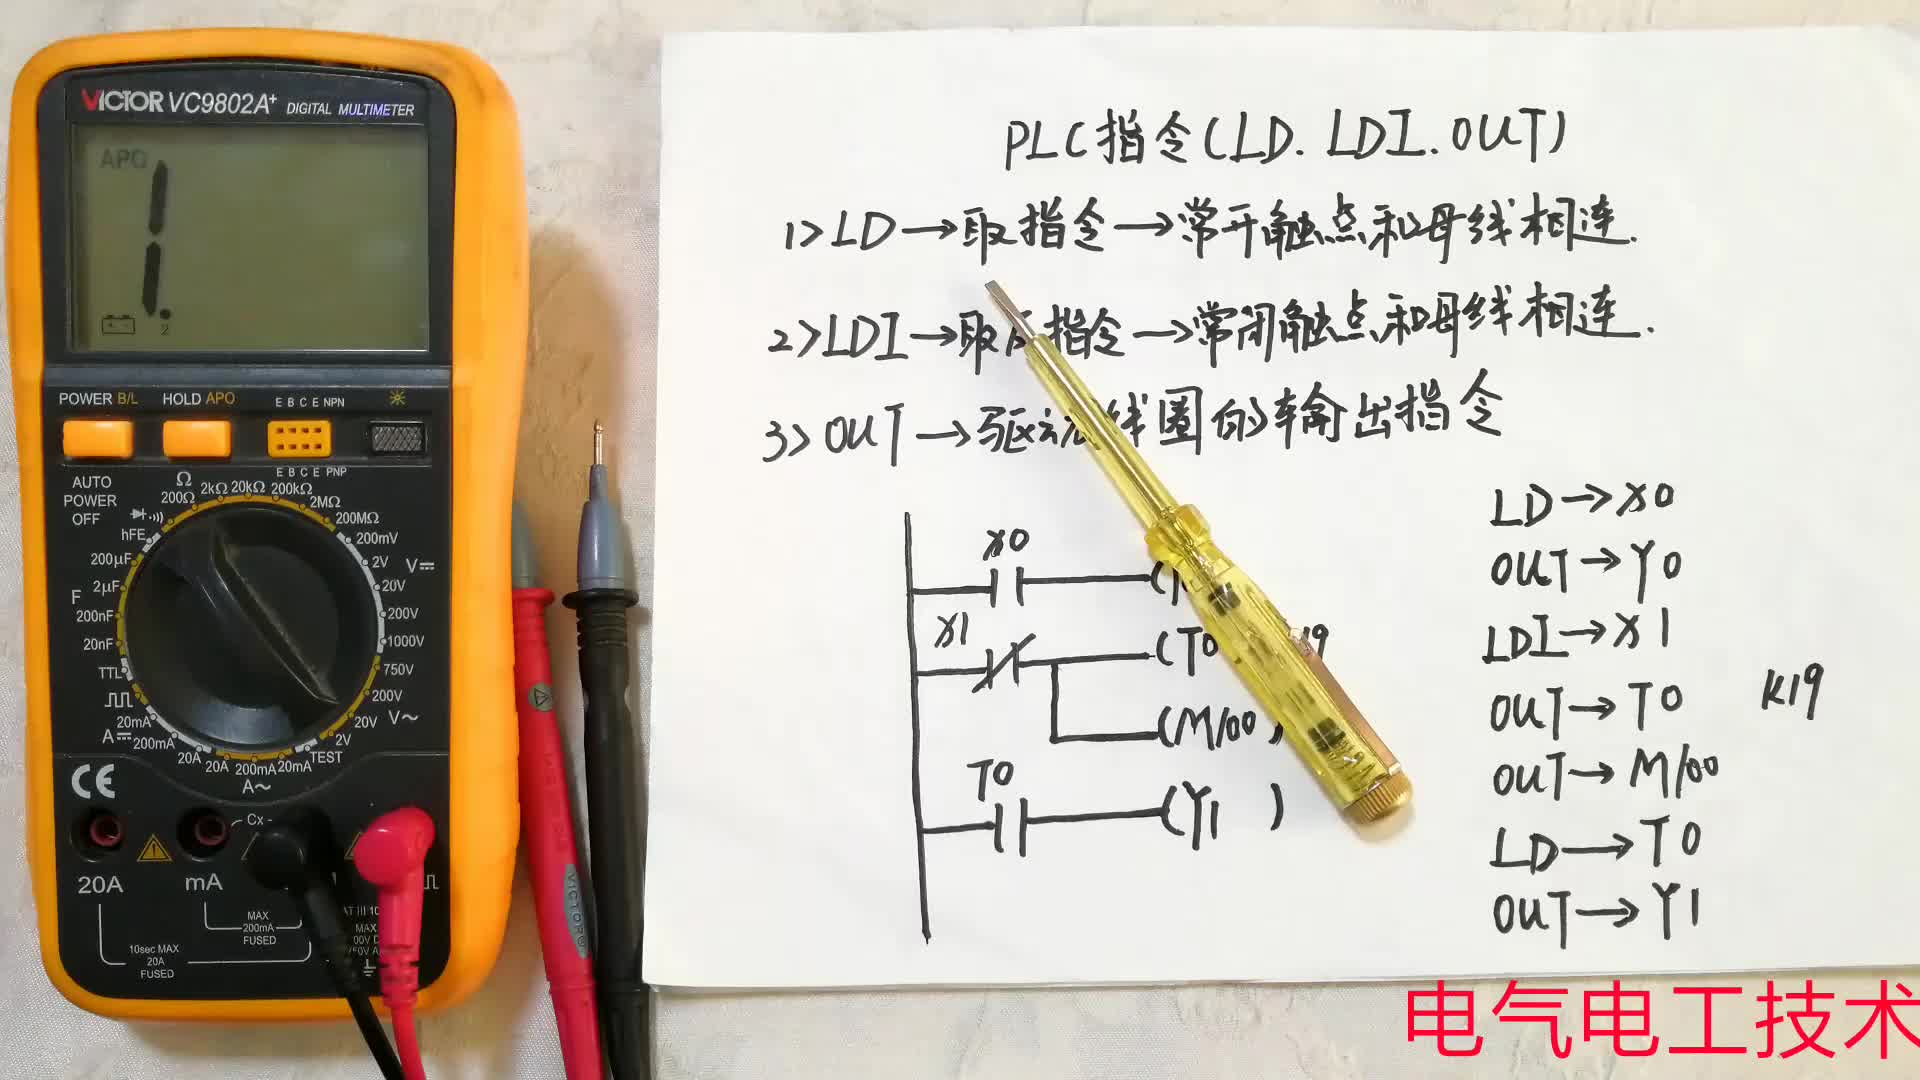 VICTOR VC9802A+ DIGITAL MULTIMETER
APO
1.
2
POWER B/L HOLD APO E B C E NPN
E B C E PNP
AUTO
POWER
OFF
Ω
200Ω 2kΩ 20kΩ 200kΩ 2MΩ 200MΩ
hFE
200mV
2V 20V 200V 1000V
V
750V 200V 20V 2V
V~
TEST
F
200μF
2μF
200nF
20nF
TTL
20mA 200mA 20A
A
20A 200mA 20mA
A~
CE
Cx
20A mA
MAX
200mA
FUSED
10sec MAX
20A
FUSED
VICTOR
PLC指令(LD.LDI.OUT)
1>LD→取指令→常开触点和母线相连.
2>LDI→取反指令→常闭触点和母线相连.
3>OUT→驱动线圈的输出指令
X0
X1
(T0
(M100)
T0
(Y1 )
LD→X0
OUT→Y0
LDI→X1
OUT→T0 K19
OUT→M100
LD→T0
OUT→Y1
电气电工技术